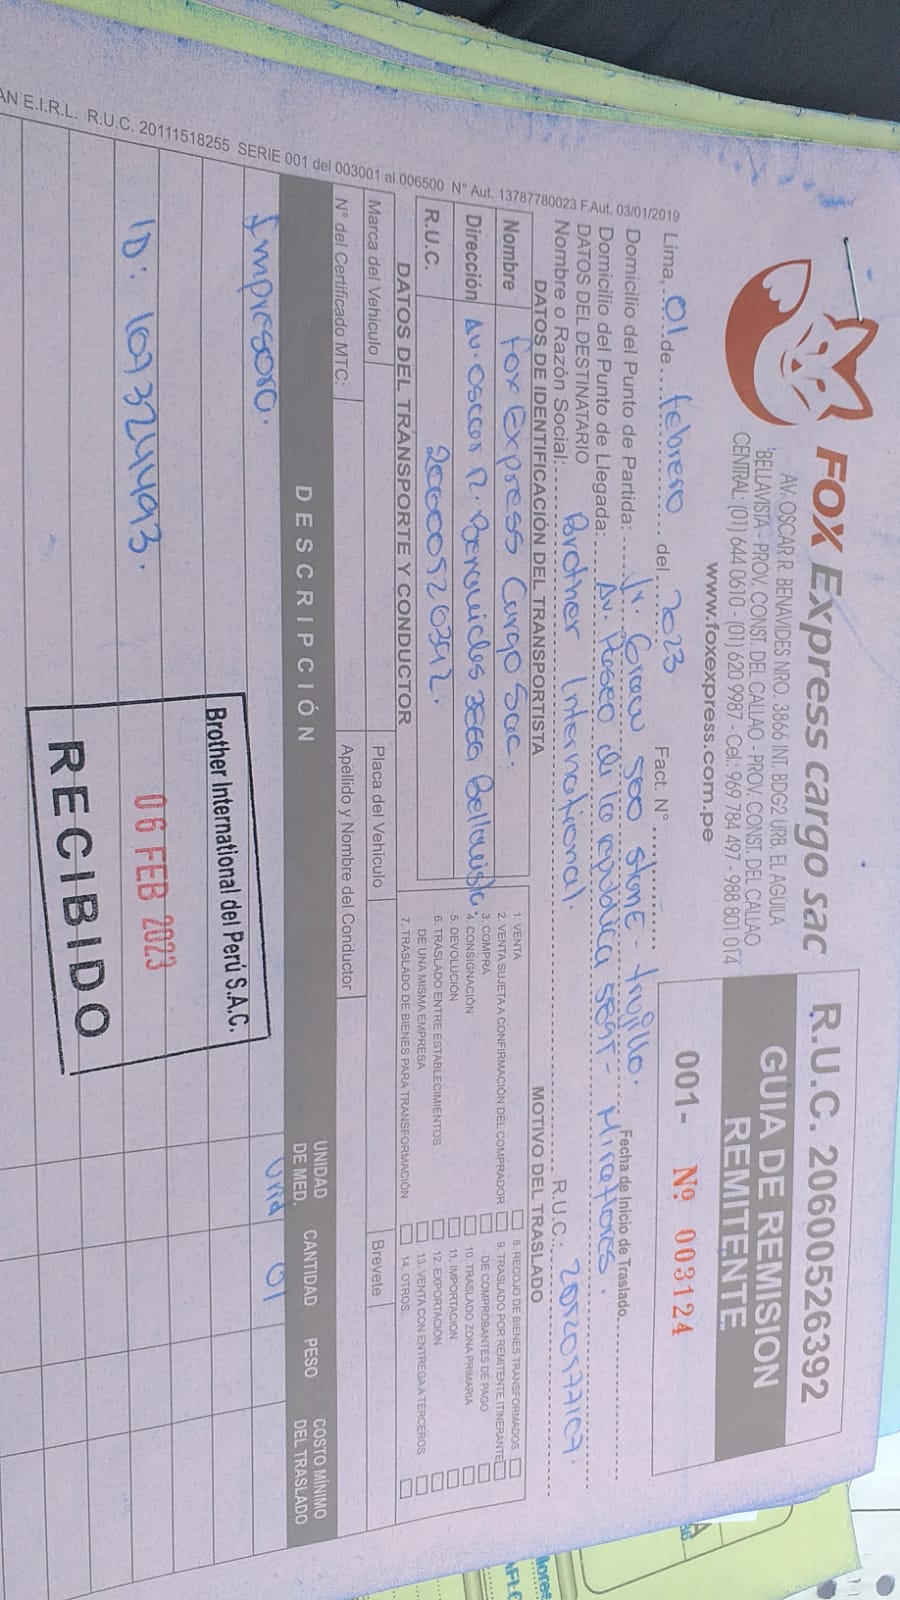 FOX Express cargo sac
AV. OSCAR R. BENAVIDES NRO. 3866 INT. BDG2 URB. EL AGUILA
BELLAVISTA - PROV. CONST. DEL CALLAO - PROV. CONST. DEL CALLAO
CENTRAL: (01) 644 0610 - (01) 620 9987 - Cel.: 969 784 497 - 988 801 014
www.foxexpress.com.pe
R.U.C. 20600526392
GUIA DE REMISION
REMITENTE
001- Nº 003124
Lima, 01 de febrero del 2023 Fact. N°
Domicilio del Punto de Partida: Jr. Grau 500 stand - trujillo. Fecha de Inicio de Traslado
Domicilio del Punto de Llegada: Av. Paseo de la republica Miraflores.
DATOS DEL DESTINATARIO
Nombre o Razón Social: Brother International. R.U.C.:
DATOS DE IDENTIFICACIÓN DEL TRANSPORTISTA
Nombre Fox Express Cargo Sac.
Dirección Av. Oscar R. Benavides 3866 Bellavista.
R.U.C. 20600526392.
MOTIVO DEL TRASLADO
1. VENTA
2. VENTA SUJETA A CONFIRMACIÓN DEL COMPRADOR
3. COMPRA
4. CONSIGNACIÓN
5. DEVOLUCIÓN
6. TRASLADO ENTRE ESTABLECIMIENTOS
DE UNA MISMA EMPRESA
7. TRASLADO DE BIENES PARA TRANSFORMACIÓN
8. RECOJO DE BIENES TRANSFORMADOS
9. TRASLADO POR REMITENTE ITINERANTE
DE COMPROBANTES DE PAGO
10. TRASLADO ZONA PRIMARIA
11. IMPORTACION
12. EXPORTACIÓN
13. VENTA CON ENTREGA A TERCEROS
14. OTROS
DATOS DEL TRANSPORTE Y CONDUCTOR
Marca del Vehículo Placa del Vehículo
N° del Certificado MTC: Apellido y Nombre del Conductor Brevete
DESCRIPCIÓN UNIDAD DE MED. CANTIDAD PESO COSTO MÍNIMO DEL TRASLADO
Impresora. Und 01
ID: 109324493.
Brother International del Perú S.A.C.
06 FEB 2023
RECIBIDO
AN E.I.R.L. R.U.C. 20111518255 SERIE 001 del 003001 al 006500 N° Aut. 13787780023 F.Aut. 03/01/2019